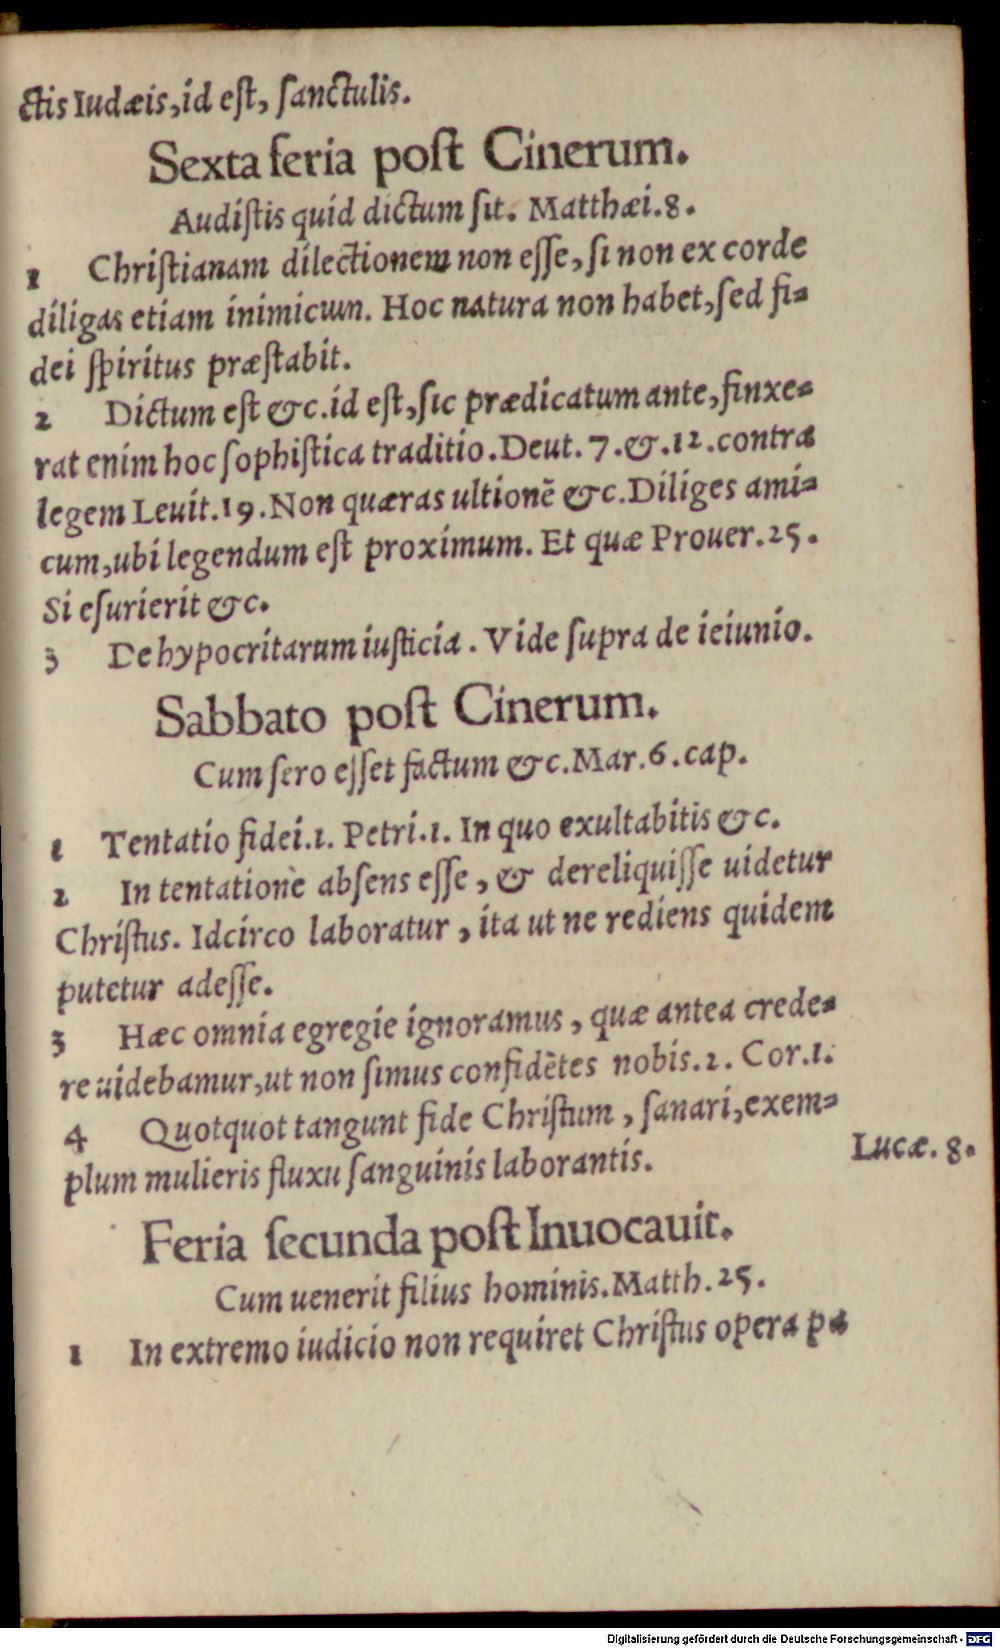 ctis Iudæis, id eſt, ſanctulis.
Sexta feria poſt Cinerum.
Audiſtis quid dictum ſit. Matthæi.8.
1 Chriſtianam dilectionem non eſſe, ſi non ex corde
diligas etiam inimicum. Hoc natura non habet, ſed fi=
dei ſpiritus præſtabit.
2 Dictum eſt &c. id eſt, ſic prædicatum ante, finxe=
rat enim hoc ſophiſtica traditio. Deut. 7. &. 12. contra
legem Leuit.19. Non quæras ultionē &c. Diliges ami=
cum, ubi legendum eſt proximum. Et quæ Prouer.25.
Si eſurierit &c.
3 De hypocritarum iuſticia. Vide ſupra de ieiunio.
Sabbato poſt Cinerum.
Cum ſero eſſet factum &c. Mar.6.cap.
1 Tentatio fidei.1. Petri.1. In quo exultabitis &c.
2 In tentatione abſens eſſe, & dereliquiſſe uidetur
Chriſtus. Idcirco laboratur, ita ut ne rediens quidem
putetur adeſſe.
3 Hæc omnia egregie ignoramus, quæ antea crede=
re uidebamur, ut non ſimus confidētes nobis.2. Cor.1.
4 Quotquot tangunt fide Chriſtum, ſanari, exem=
plum mulieris fluxu ſanguinis laborantis.
Lucæ. 8.
Feria ſecunda poſt Inuocauit.
Cum uenerit filius hominis. Matth.25.
1 In extremo iudicio non requiret Chriſtus opera pa
Digitalisierung gefördert durch die Deutsche Forschungsgemeinschaft - DFG